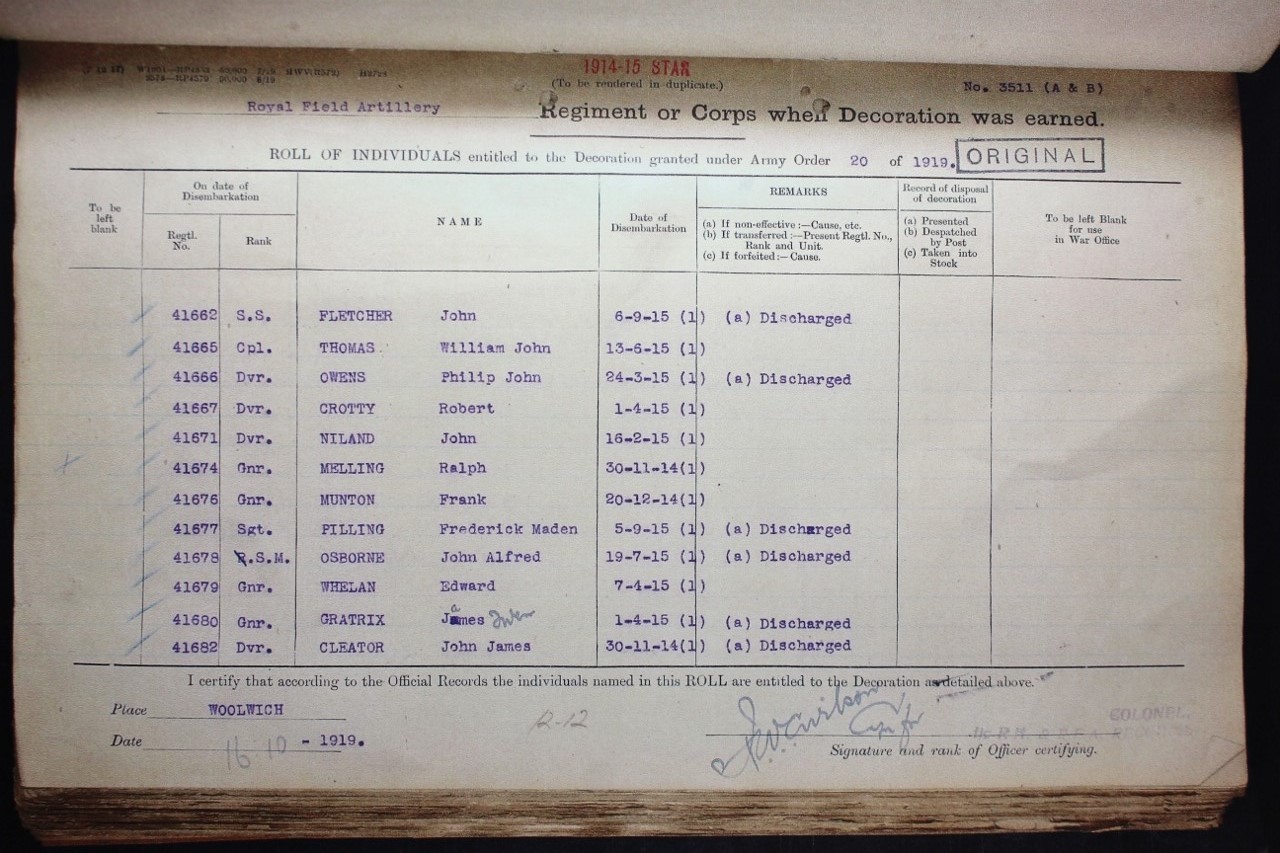 1914-15 STAR
(To be rendered in duplicate.)
No. 3511 (A & B)
Royal Field Artillery Regiment or Corps when Decoration was earned.
ROLL OF INDIVIDUALS entitled to the Decoration granted under Army Order 20 of 1919. ORIGINAL
To be left blank
On date of Disembarkation
Regtl. No.
Rank
NAME
Date of Disembarkation
REMARKS
(a) If non-effective :—Cause, etc.
(b) If transferred :—Present Regtl. No., Rank and Unit.
(c) If forfeited :— Cause.
Record of disposal of decoration
(a) Presented
(b) Despatched by Post
(c) Taken into Stock
To be left Blank for use in War Office
41662 S.S. FLETCHER John 6-9-15 (1) (a) Discharged
41665 Cpl. THOMAS William John 13-6-15 (1)
41666 Dvr. OWENS Philip John 24-3-15 (1) (a) Discharged
41667 Dvr. CROTTY Robert 1-4-15 (1)
41671 Dvr. NILAND John 16-2-15 (1)
41674 Gnr. MELLING Ralph 30-11-14(1)
41676 Gnr. MUNTON Frank 20-12-14(1)
41677 Sgt. PILLING Frederick Maden 5-9-15 (1) (a) Discharged
41678 .S.M. OSBORNE John Alfred 19-7-15 (1) (a) Discharged
41679 Gnr. WHELAN Edward 7-4-15 (1)
41680 Gnr. GRATRIX James 1-4-15 (1) (a) Discharged
41682 Dvr. CLEATOR John James 30-11-14(1) (a) Discharged
I certify that according to the Official Records the individuals named in this ROLL are entitled to the Decoration as detailed above.
Place WOOLWICH
R-12
COLONEL,
Date 16 10 - 1919.
Signature and rank of Officer certifying.